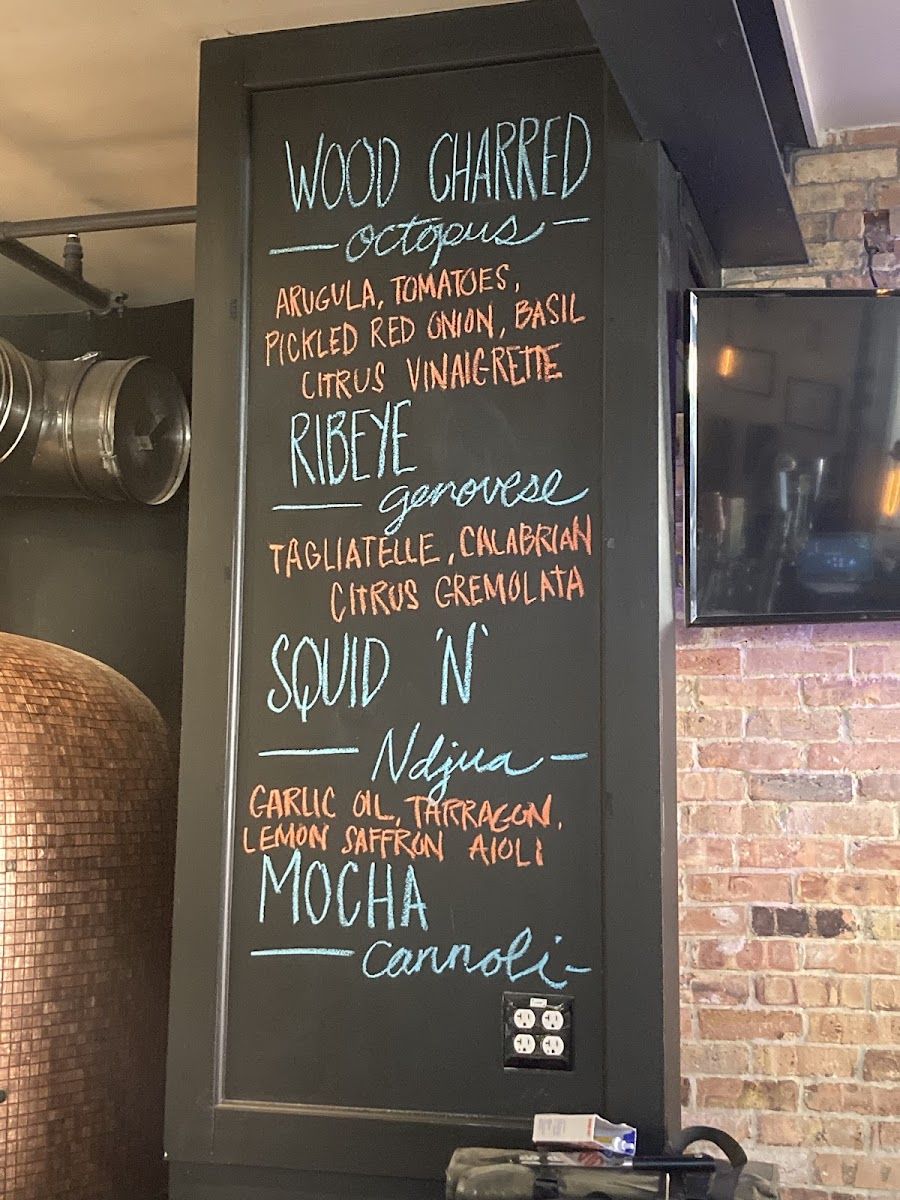 WOOD CHARRED
octopus
ARUGULA, TOMATOES,
PICKLED RED ONION, BASIL
CITRUS VINAIGRETTE
RIBEYE
genovese
TAGLIATELLE, CALABRIAN
CITRUS GREMOLATA
SQUID 'N'
Ndjua
GARLIC OIL, TARRAGON,
LEMON SAFFRON AIOLI
MOCHA
Cannoli